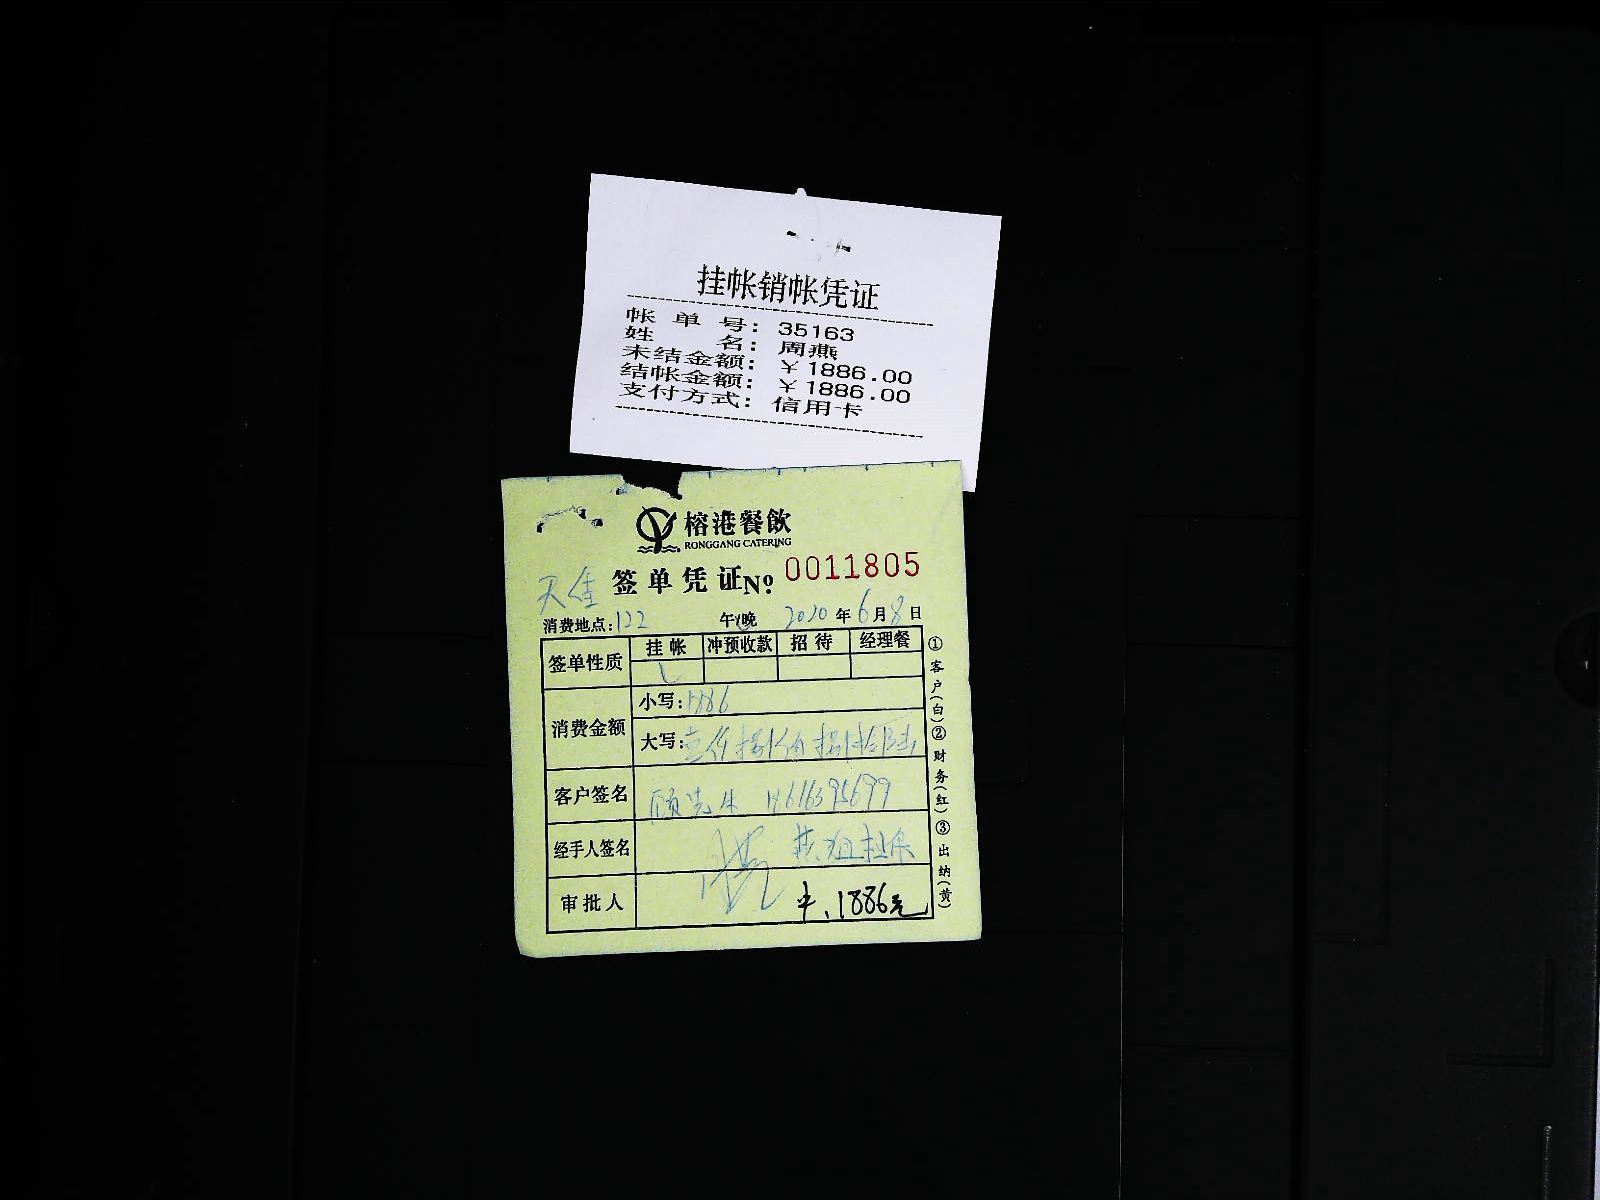 挂帐销帐凭证
帐单号：35163
姓名：周燕
未结金额：￥1886.00
结帐金额：￥1886.00
支付方式：信用卡
榕港餐飲
RONGGANG CATERING
签单凭证No: 0011805
天佳
消费地点：122 午/晚 2020年6月8日
签单性质 挂帐 冲预收款 招待 经理餐
消费金额 小写：1886
大写：壹仟捌佰捌拾陆
客户签名 顾先生
经手人签名
审批人 1886元
①客户(白)②财务(红)③出纳(黄)